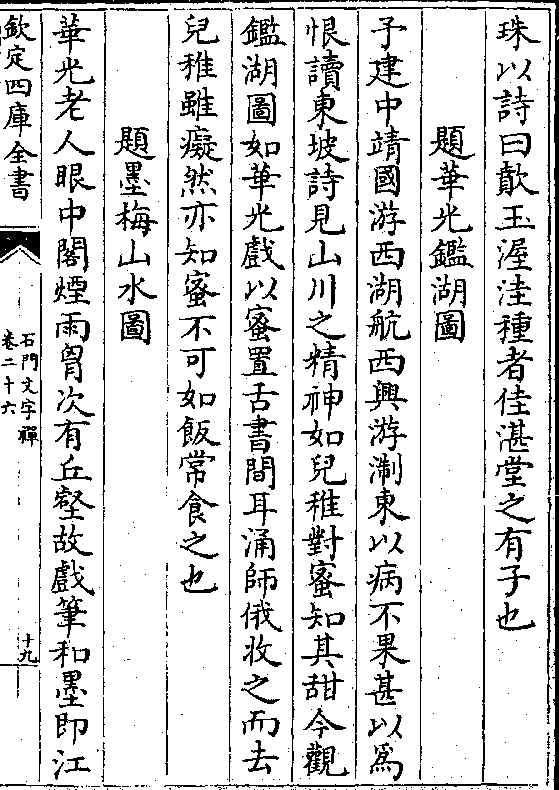 珠以詩曰歕玉渥洼種者佳湛堂之有子也
題華光鑑湖圖
予建中靖國游西湖航西興游淛東以病不果甚以爲
恨讀東坡詩見山川之精神如兒稚對蜜知其甜今觀
鑑湖圖如華光戲以蜜置舌書間耳涌師俄收之而去
兒稚雖癡然亦知蜜不可如飯常食之也
題墨梅山水圖
華光老人眼中閣煙雨胷次有丘壑故戲筆和墨即江
欽定四庫全書
石門文字禪
卷二十六
十九